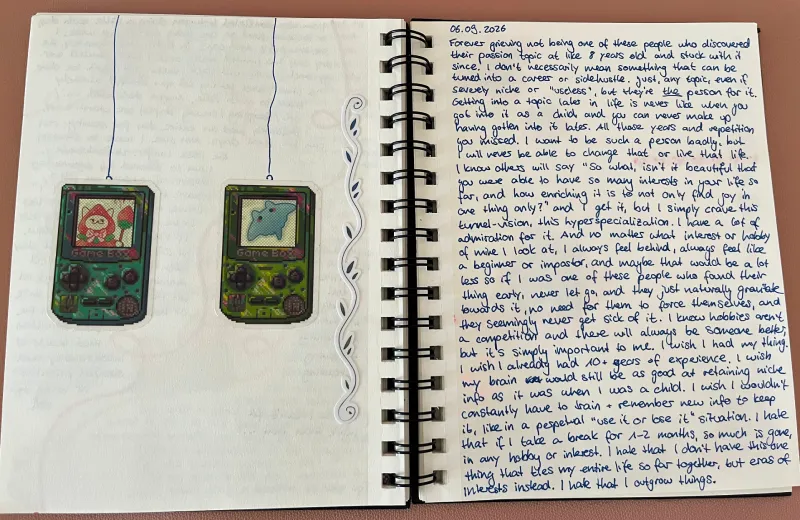 Game Box
Game Box
06.09.2026
Forever grieving not being one of these people who discovered
their passion topic at like 8 years old and stuck with it
since. I don't necessarily mean something that can be
turned into a career or sidehustle. Just, any topic, even if
severely niche or "useless", but they're the person for it.
Getting into a topic later in life is never like when you
got into it as a child and you can never make up
having gotten into it later. All those years and repetition
you missed. I want to be such a person badly, but
I will never be able to change that or live that life.
I know others will say "So what, isn't it beautiful that
you were able to have so many interests in your life so
far, and how enriching it is to not only find joy in
one thing only?" and I get it, but I simply crave this
tunnel-vision, this hyperspecialization. I have a lot of
admiration for it. And no matter what interest or hobby
of mine I look at, I always feel behind, always feel like
a beginner or impostor, and maybe that would be a lot
less so if I was one of these people who found their
thing early, never let go, and they just naturally gravitate
towards it, no need for them to force themselves, and
they seemingly never get sick of it. I know hobbies aren't
a competition and there will always be someone better,
but it's simply important to me. I wish I had my thing.
I wish I already had 10+ years of experience. I wish
my brain would still be as good at retaining niche
info as it was when I was a child. I wish I wouldn't
constantly have to train + remember new info to keep
it, like in a perpetual "use it or lose it" situation. I hate
that if I take a break for 1-2 months, so much is gone,
in any hobby or interest. I hate that I don't have this one
thing that ties my entire life so far together, but eras of
interests instead. I hate that I outgrow things.